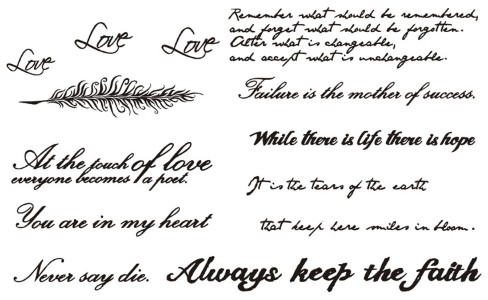 Love
Love
Love
Remember what should be remembered,
and forget what should be forgotten.
Alter what is changeable,
and accept what is unchangeable.
Failure is the mother of success.
While there is life there is hope
At the touch of love
everyone becomes a poet.
It is the tears of the earth
You are in my heart
that keep here smiles in bloom.
Never say die.
Always keep the faith